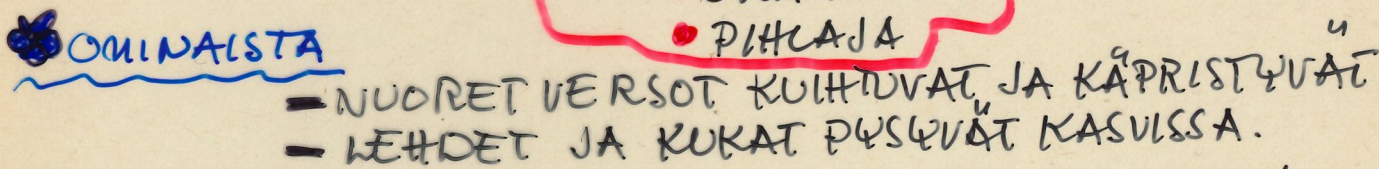 • PIHLAJA
OMINAISTA
- NUORET VERSOT KUIHTUVAT JA KÄPRISTYVÄT
- LEHDET JA KUKAT PYSYVÄT KASVISSA.